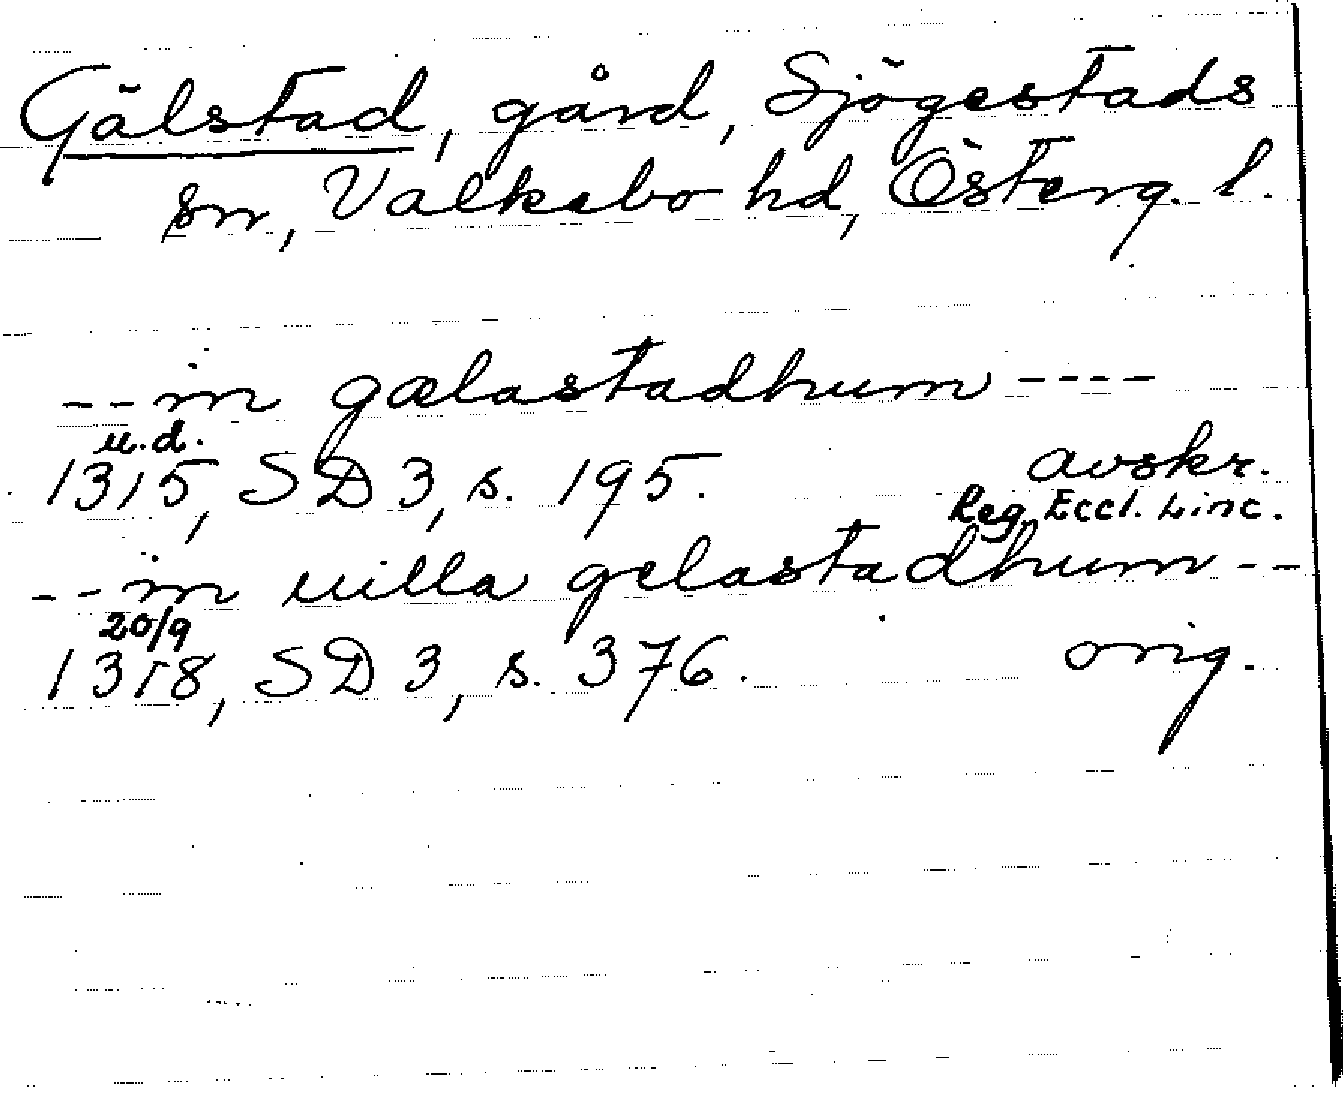 Gälstad, gård, Sjögestads
sn, Valkebo hd, Österg. l.
-- in gælastadhum ----
u.d.
1315, SD 3, s. 195. avskr.
Reg. Eccl. Linc.
-- in uilla gelastadhum --
20/9
1318, SD 3, s. 376. orig.